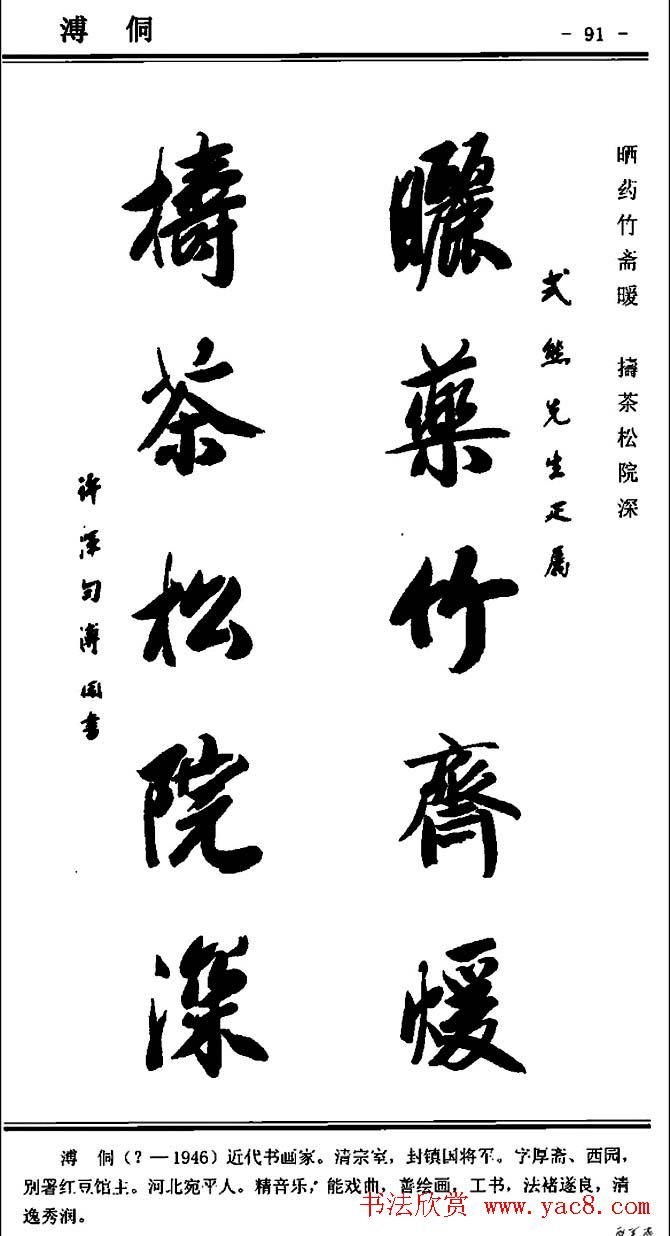 溥 侗
- 91 -
晒药竹斋暖 擣茶松院深
式熊先生正属
曬藥竹齋煖
擣茶松院深
许浑句溥侗书
溥 侗（？—1946）近代书画家。清宗室，封镇国将军。字厚斋、西园，
别署红豆馆主。河北宛平人。精音乐，能戏曲，善绘画，工书，法褚遂良，清
逸秀润。
书法欣赏 www.yac8.com